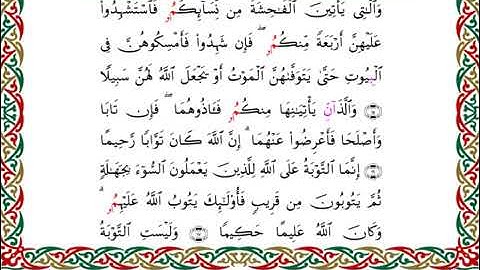 وَٱلَّٰتِى يَأْتِينَ ٱلْفَٰحِشَةَ مِن نِّسَآئِكُمُۥ فَٱسْتَشْهِدُوا۟
عَلَيْهِنَّ أَرْبَعَةً مِّنكُمُۥ ۖ فَإِن شَهِدُوا۟ فَأَمْسِكُوهُنَّ فِى
ٱلْبِيُوتِ حَتَّىٰ يَتَوَفَّىٰهُنَّ ٱلْمَوْتُ أَوْ يَجْعَلَ ٱللَّهُ لَهُنَّ سَبِيلًا
وَٱلَّذَآنِّ يَأْتِيَٰنِهَا مِنكُمُۥ فَـَٔاذُوهُمَا ۖ فَإِن تَابَا
وَأَصْلَحَا فَأَعْرِضُوا۟ عَنْهُمَآ ۗ إِنَّ ٱللَّهَ كَانَ تَوَّابًا رَّحِيمًا
إِنَّمَا ٱلتَّوْبَةُ عَلَى ٱللَّهِ لِلَّذِينَ يَعْمَلُونَ ٱلسُّوٓءَ بِجَهَٰلَةٍ
ثُمَّ يَتُوبُونَ مِن قَرِيبٍ فَأُو۟لَٰٓئِكَ يَتُوبُ ٱللَّهُ عَلَيْهِمُۥ ۗ
وَكَانَ ٱللَّهُ عَلِيمًا حَكِيمًا وَلَيْسَتِ ٱلتَّوْبَةُ